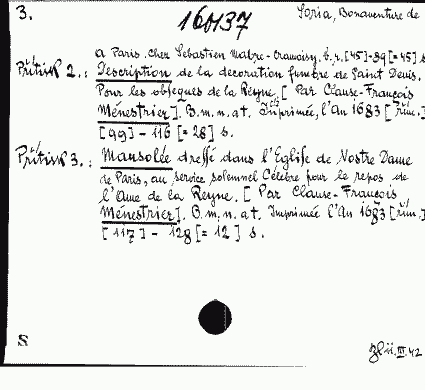 3.
16H37
Soria, Bonaventure de
a Paris. chez Sebastien Mabre-Cramoisy. b.r. [45]-89 [=45] s
Přítisk 2.: Description de la decoration funebre de Saint Denis.
Pour les obseques de la Reyne. [Par Clause-François
Ménestrier]. B.m.n.a t. Imprimée, l'An 1683 [řím.]
[99] - 116 [= 28] s.
Přítisk 3.: Mausolée dressé dans l'Eglise de Nostre Dame
de Paris, au service solemnel Célébre pour le repos de
l'Ame de la Reyne. [Par Clause-François
Ménestrier]. B.m.n.a t. Imprimée l'An 1683 [řím.]
[117] - 128 [= 12] s.
S
III.42